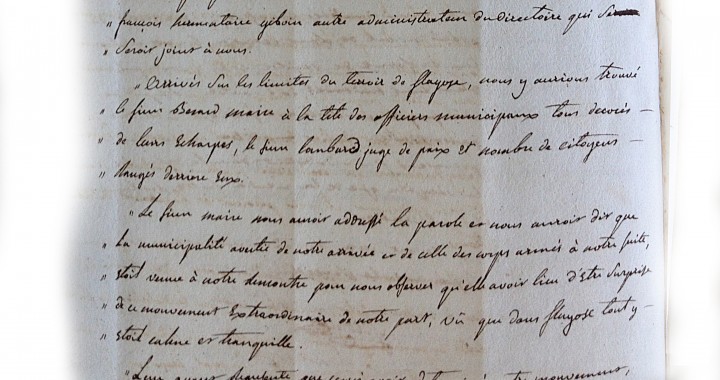 " françois hermentaire geboin autre administrateur du directoire qui
" seroit joint à nous.
" Arrivés sur les limites du terroir de flayosc, nous y aurions trouvé
" le sieur Berard maire à la tête des officiers municipaux tous decorés –
" de leurs Echarpes, le sieur lombard juge de paix et nombre de citoyens –
" Rangés derriere Eux.
" Le sieur maire nous auroit addressé la parole et nous auroit dit que
" la municipalité avertie de notre arrivée et de celle des corps armés à notre suite,
" Etoit venue à notre rencontre pour nous observer qu'elle avoit lieu d'Etre surprise
" de ce mouvement Extraordinaire de notre part, vû que dans flayosc tout y –
" Etoit calme et tranquille.
" Leur ayant